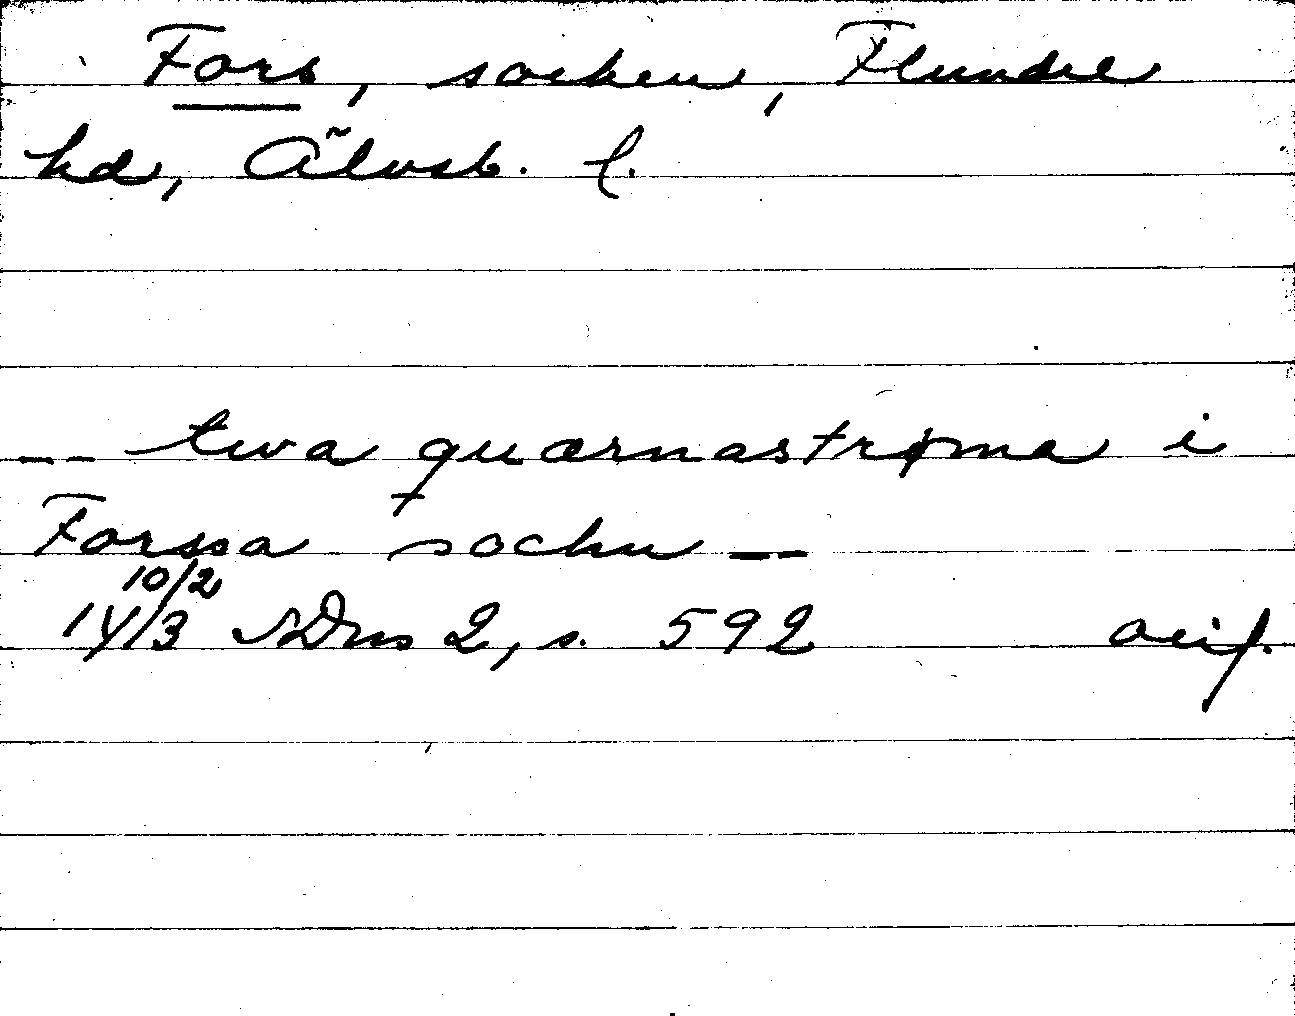 Fors, socken, Flundre
hd, Älvsb. l.
-- twa quærnastrøma i
Forssa sochn --
10/2
1413 SDns 2, s. 592 avs.